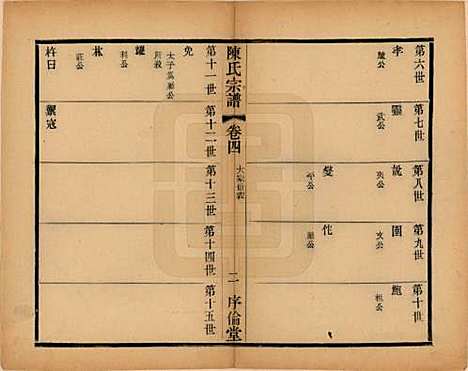 第六世
孝
陵公
第七世
靈
武公
第八世
說
夷公
燮
平公
第九世
圉
文公
佗
厲公
第十世
鮑
桓公
陳氏宗譜
卷四
大宗世表
二
序倫堂
第十一世
免
太子爲厲公
所殺
躍
利公
林
莊公
杵臼
禦寇
第十二世
第十三世
第十四世
第十五世